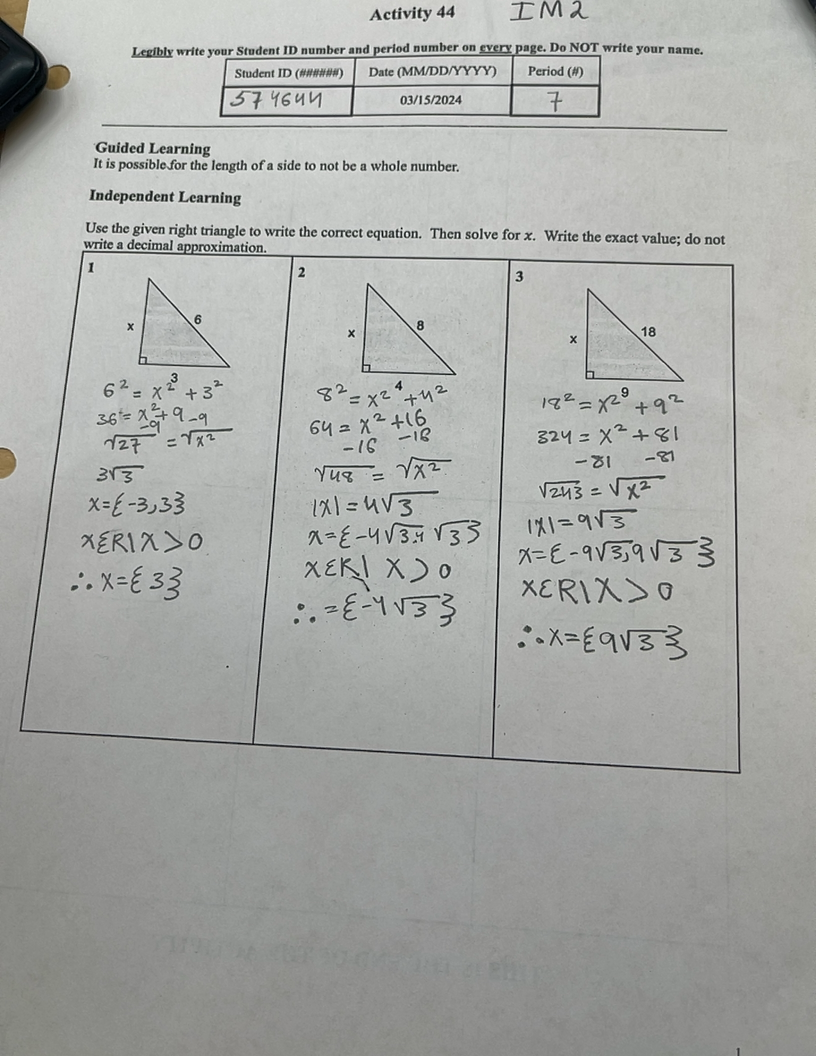 Activity 44 IM2
Legibly write your Student ID number and period number on every page. Do NOT write your name.
Student ID (######) Date (MM/DD/YYYY) Period (#)
574644 03/15/2024 7
Guided Learning
It is possible for the length of a side to not be a whole number.
Independent Learning
Use the given right triangle to write the correct equation. Then solve for x. Write the exact value; do not
write a decimal approximation.
1
x
6
3
6² = x² + 3²
36 = x² + 9
-9 -9
√27 = √x²
3√3
x={-3,3}
xεR|x>0
∴ x={3}
2
x
8
4
8² = x² + 4²
64 = x² + 16
-16 -16
√48 = √x²
|x|=4√3
x={-4√3,4√3}
xεR| x>0
∴ ={-4√3}
3
x
18
9
18² = x² + 9²
324 = x² + 81
-81 -81
√243 = √x²
|x|=9√3
x={-9√3,9√3}
xεR|x>0
∴x={9√3}
1